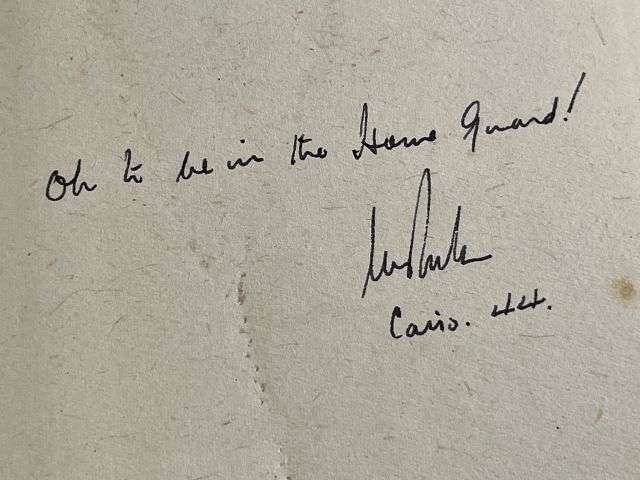 Oh to be in the Home Guard!
Cairo. 44.